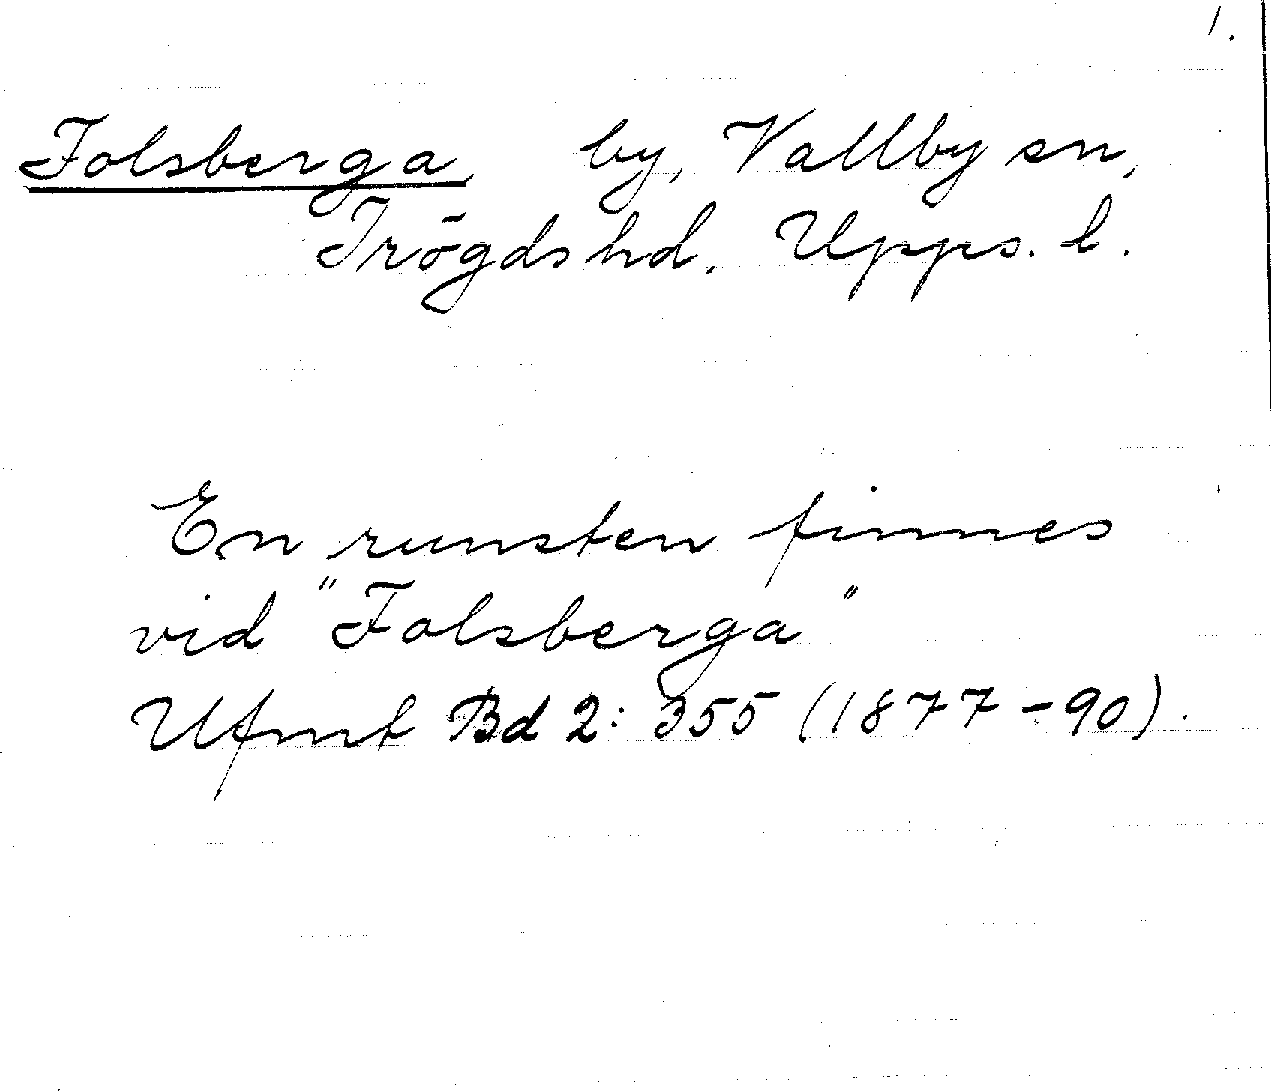 1.
Folsberga, by, Vallby sn,
Trögds hd. Upps. l.
En runsten finnes
vid "Folsberga"
Ufmt Bd 2: 355 (1877-90).